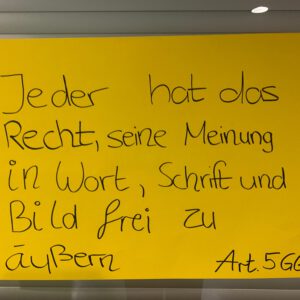 Jeder hat das
Recht, seine Meinung
in Wort, Schrift und
Bild frei zu
äußern Art. 5 GG